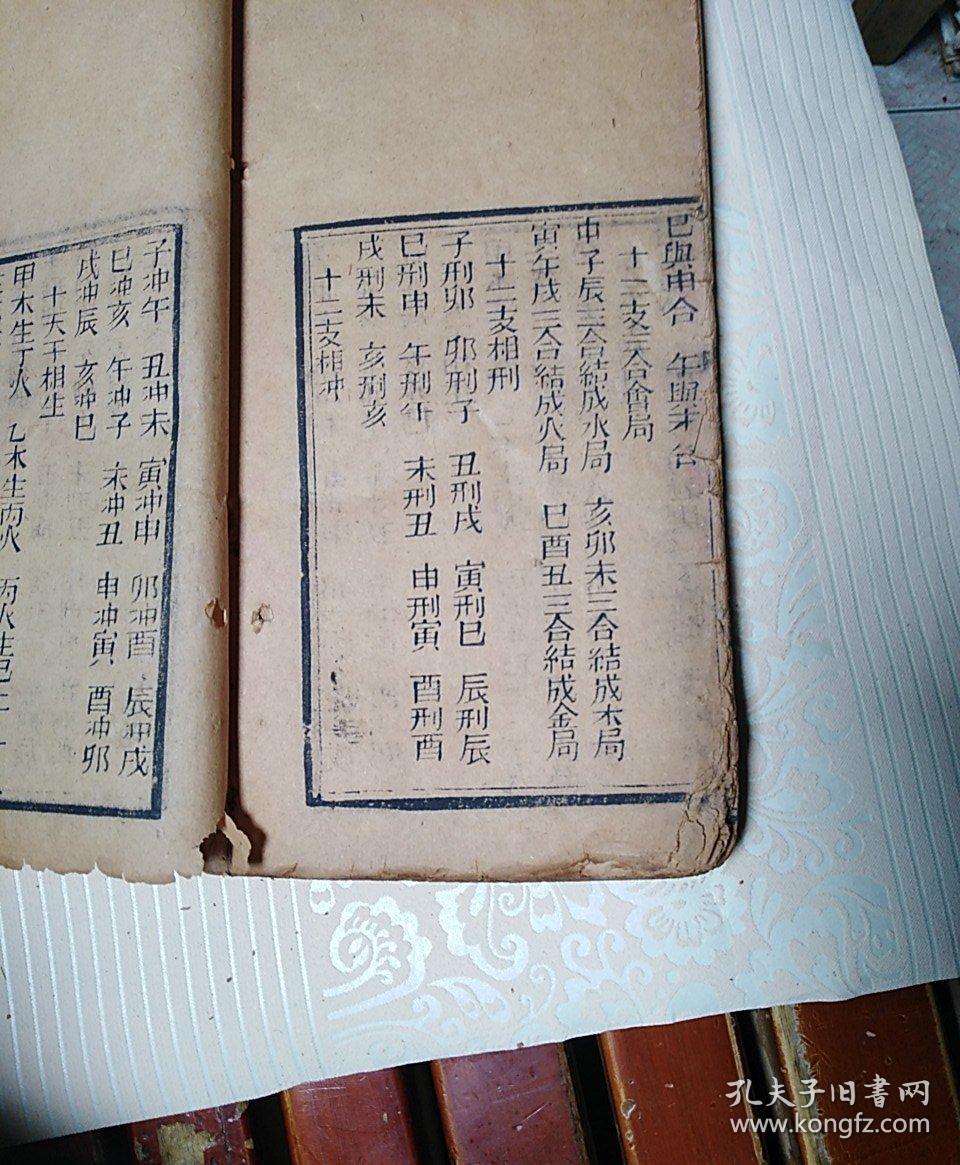 巳與申合　午與未合
十二支三合會局
申子辰三合結成水局　亥卯未三合結成木局
寅午戌三合結成火局　巳酉丑三合結成金局
十二支相刑
子刑卯　卯刑子　丑刑戌　寅刑巳　辰刑辰
巳刑申　午刑午　未刑丑　申刑寅　酉刑酉
戌刑未　亥刑亥
十二支相冲
子冲午　丑冲未　寅冲申　卯冲酉　辰冲戌
巳冲亥　午冲子　未冲丑　申冲寅　酉冲卯
戌冲辰　亥冲巳
十天干相生
甲木生丁火　乙木生丙火　丙火生己土
孔夫子旧書网
www.kongfz.com